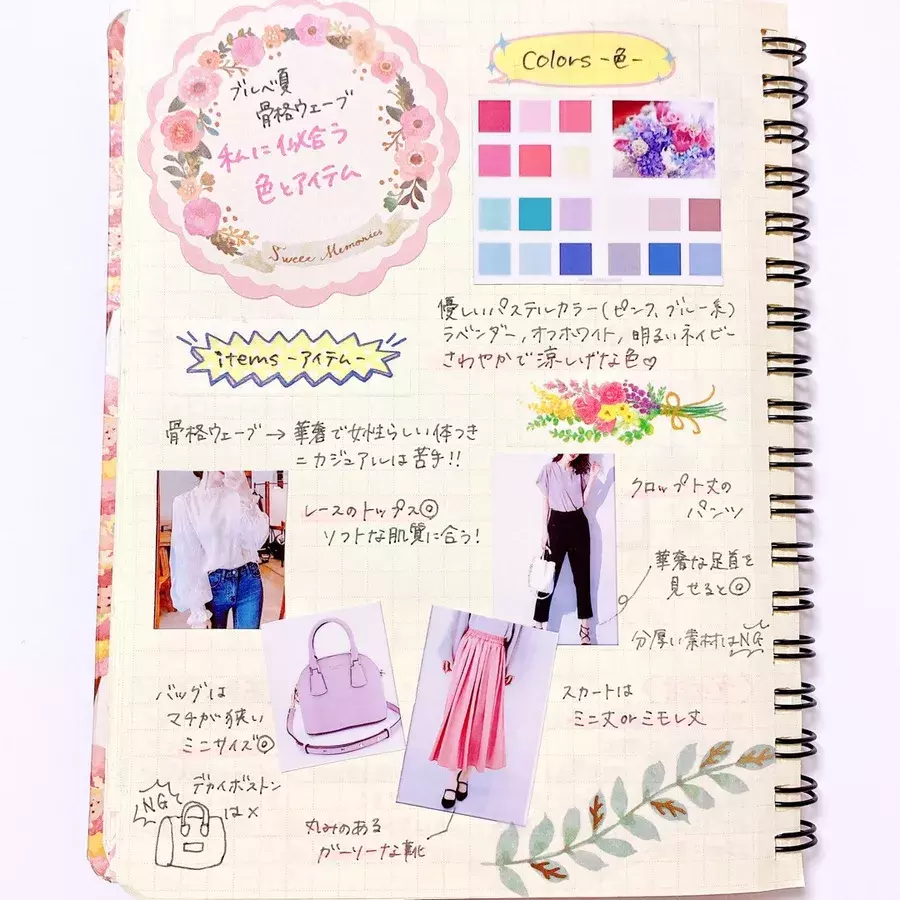 ブルベ夏
骨格ウェーブ
私に似合う
色とアイテム
Sweet Memories
Colors -色-
優しいパステルカラー(ピンク、ブルー系)
ラベンダー, オフホワイト, 明るいネイビー
さわやかで涼しげな色♡
items -アイテム-
骨格ウェーブ → 華奢で女性らしい体つき
= カジュアルは苦手!!
レースのトップス◎
ソフトな肌質に合う!
クロップト丈の
パンツ
華奢な足首を
見せると◎
分厚い素材はNG
バッグは
マチが狭い
ミニサイズ◎
スカートは
ミニ丈orミモレ丈
NG
デカイボストン
は×
丸みのある
ガーリーな靴